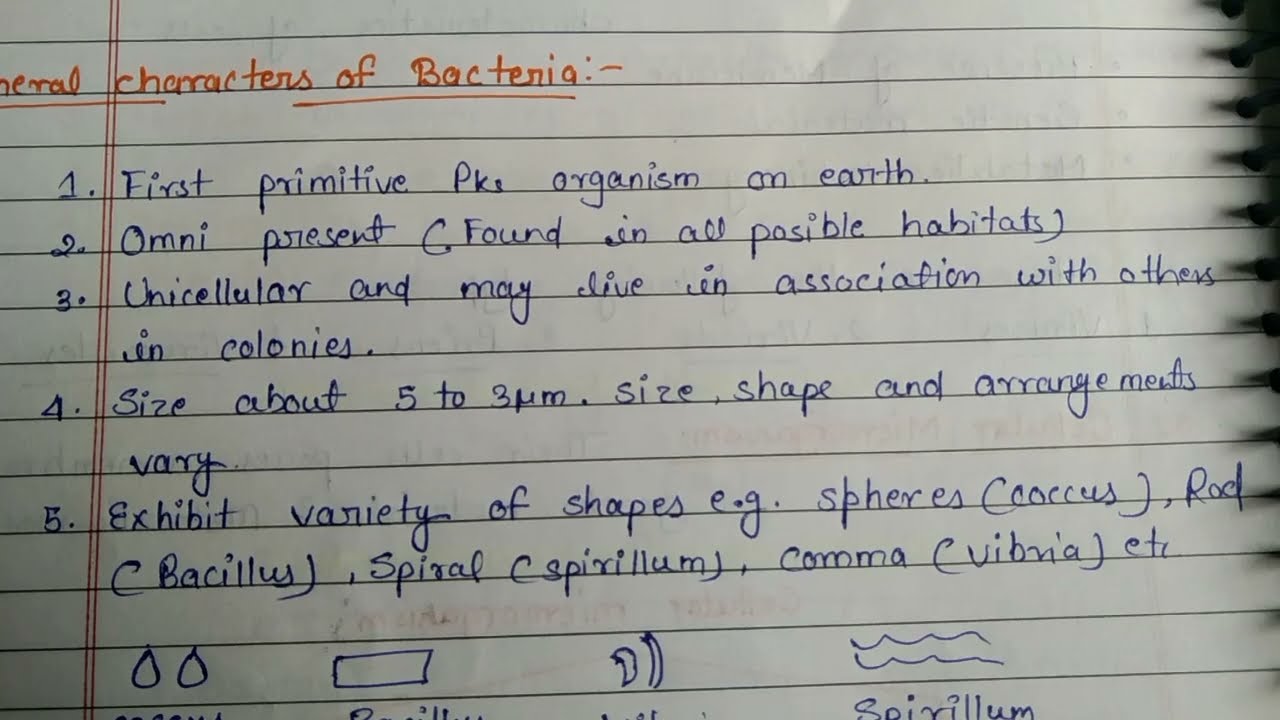 neral characters of Bacteria:-
1. First primitive Pks organism on earth.
2. Omni present (Found in all posible habitats)
3. Unicellular and may live in association with others
in colonies.
4. Size about 5 to 3μm. size, shape and arrangements
vary.
5. Exhibit variety of shapes e.g. spheres (coccus), Rod
(Bacillus), Spiral (spirillum), comma (vibria) etc
Spirillum